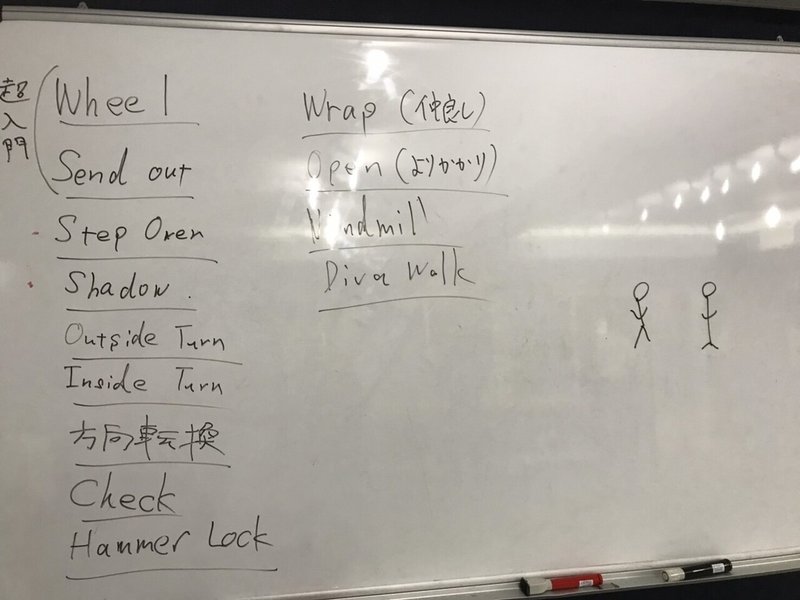 超入門
Wheel
Send out
Step Over
Shadow.
Outside Turn
Inside Turn
方向転換
Check
Hammer Lock
Wrap (仲良し)
Open (よりかかり)
Windmill
Diva Walk